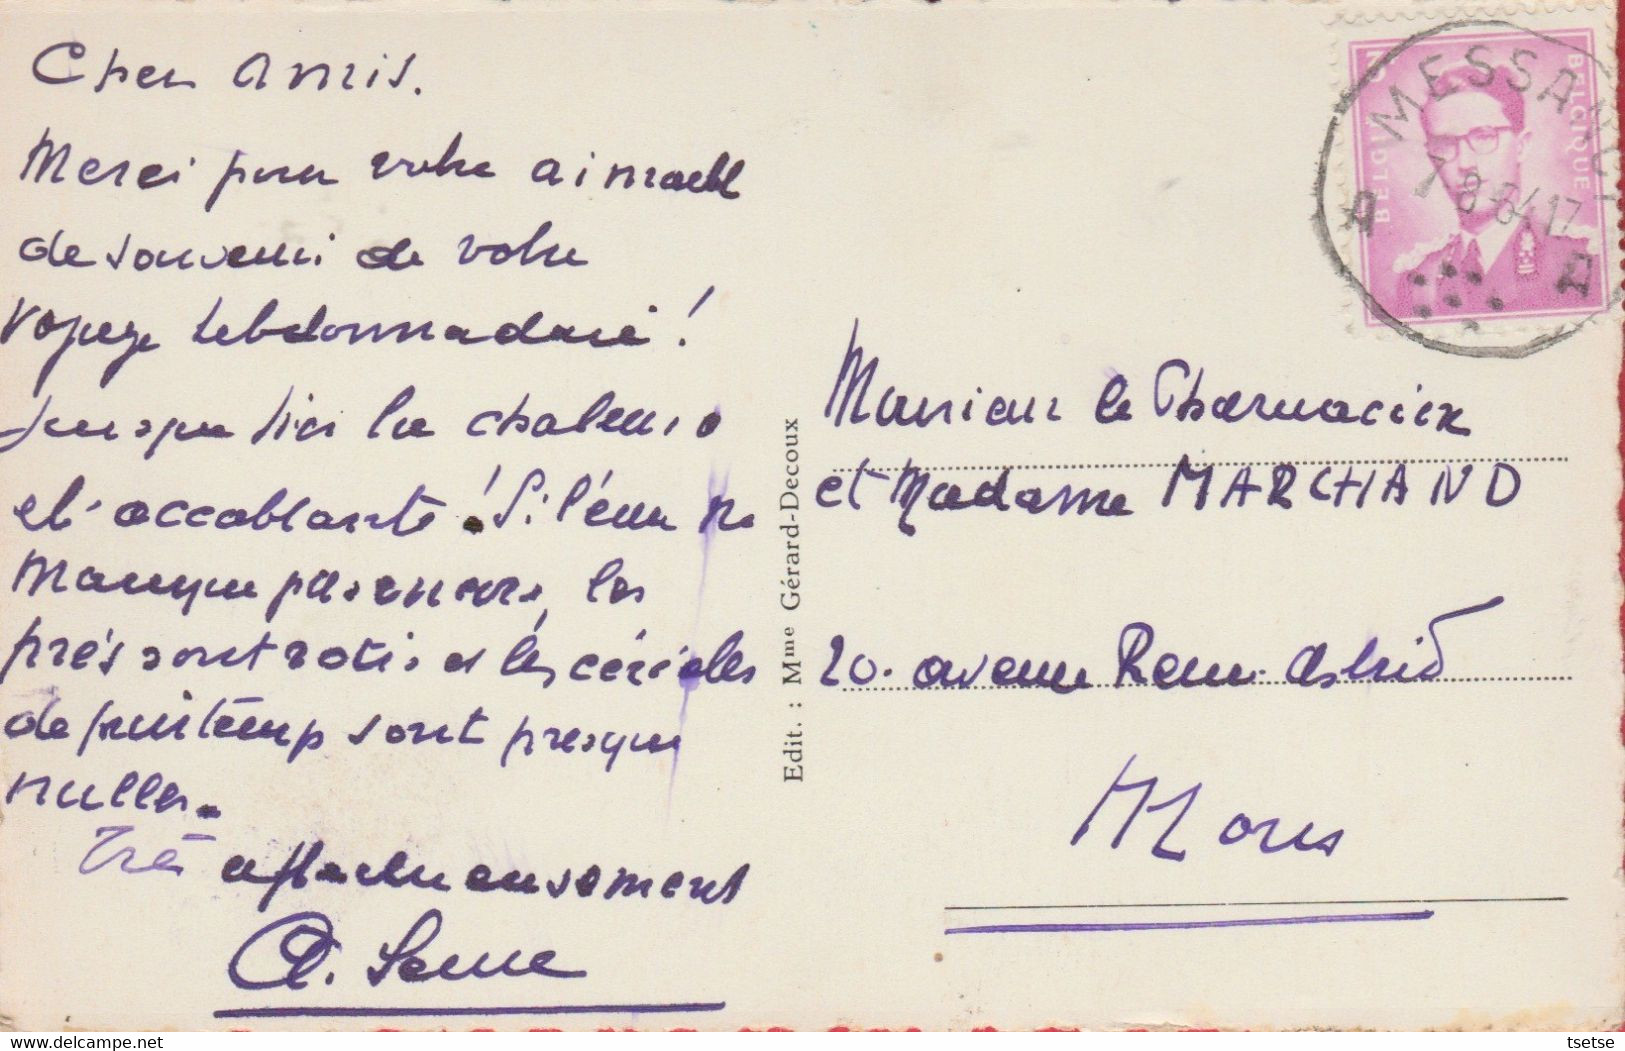 Cher Amis.
Merci pour votre aimable
de souvenir de votre
voyage hebdomadaire !
Jusqu'ici la chaleur
est accablante ! Si l'eau ne
manque pas encore, les
prés sont rotis et les céréales
de printemps sont presque
nulles.
Très affectueusement
A.
Edit. : Mme Gérard-Decoux
BELGIË BELGIQUE
MESSANCY
7-8-64 17
A A
Monsieur le Pharmacien
et Madame MARCHAND
20. avenue Reine Astrid
Mons
delcampe.net
tsetse